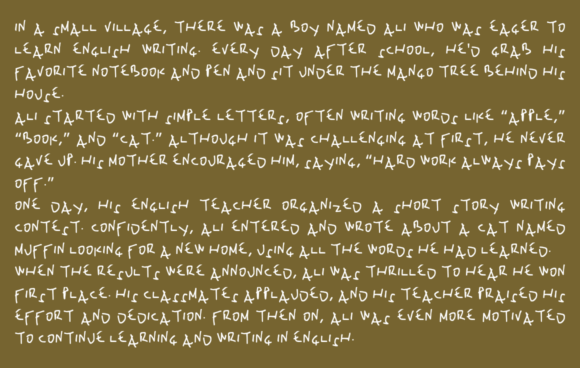 IN A SMALL VILLAGE, THERE WAS A BOY NAMED ALI WHO WAS EAGER TO
LEARN ENGLISH WRITING. EVERY DAY AFTER SCHOOL, HE'D GRAB HIS
FAVORITE NOTEBOOK AND PEN AND SIT UNDER THE MANGO TREE BEHIND HIS
HOUSE.
ALI STARTED WITH SIMPLE LETTERS, OFTEN WRITING WORDS LIKE “APPLE,”
“BOOK,” AND “CAT.” ALTHOUGH IT WAS CHALLENGING AT FIRST, HE NEVER
GAVE UP. HIS MOTHER ENCOURAGED HIM, SAYING, “HARD WORK ALWAYS PAYS
OFF.”
ONE DAY, HIS ENGLISH TEACHER ORGANIZED A SHORT STORY WRITING
CONTEST. CONFIDENTLY, ALI ENTERED AND WROTE ABOUT A CAT NAMED
MUFFIN LOOKING FOR A NEW HOME, USING ALL THE WORDS HE HAD LEARNED.
WHEN THE RESULTS WERE ANNOUNCED, ALI WAS THRILLED TO HEAR HE WON
FIRST PLACE. HIS CLASSMATES APPLAUDED, AND HIS TEACHER PRAISED HIS
EFFORT AND DEDICATION. FROM THEN ON, ALI WAS EVEN MORE MOTIVATED
TO CONTINUE LEARNING AND WRITING IN ENGLISH.